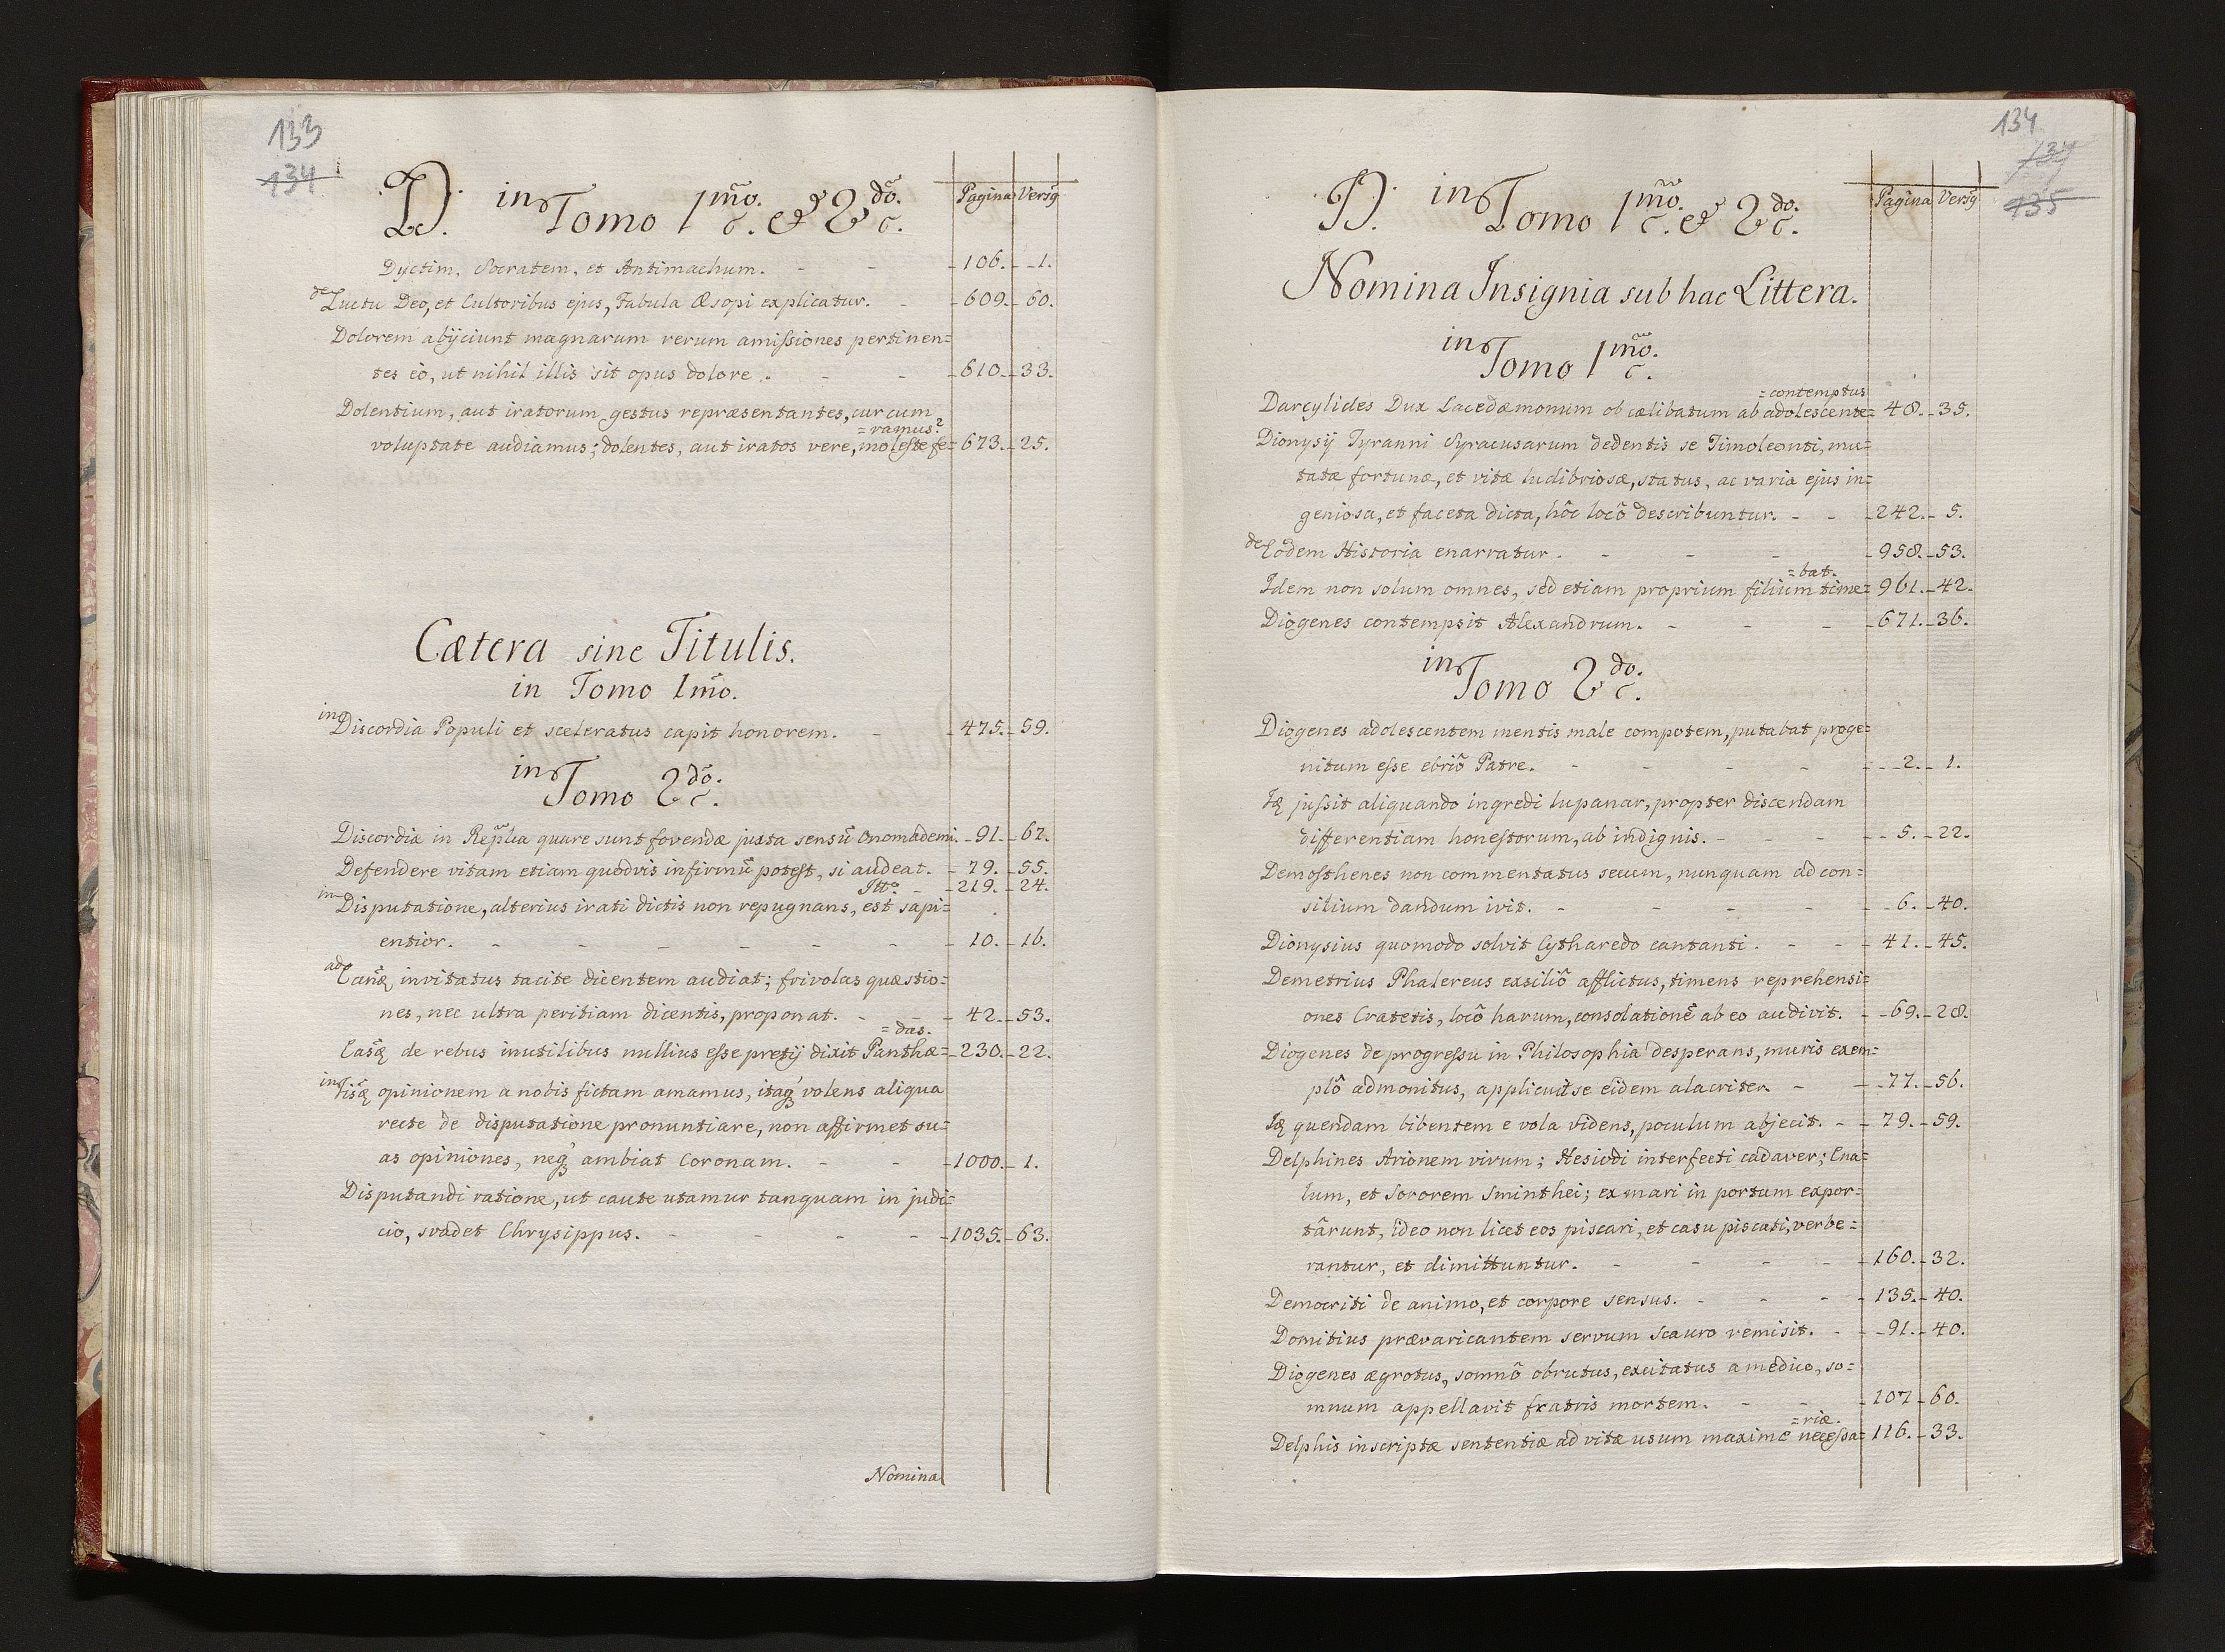 133
134
D. in Tomo 1mo. & 2do.
Pagina Versq
Dyctim, Socratem, et Antimachum. - - 106. - 1.
de Luctu Deo, et Cultoribus ejus, Fabula Æsopi explicatur. - 609. - 60.
Dolorem abijciunt magnarum rerum amissiones pertinen=
tes eò, ut nihil illis sit opus dolore. - - 610. - 33.
Dolentium, aut iratorum gestus repræsentantes, cur cum
=ramus?
voluptate audiamus; dolentes, aut iratos vere, moleste fe= 673. - 25.
Cætera sine Titulis.
in Tomo 1mo.
in Discordia Populi et sceleratus capit honorem. - 475. - 59.
in Tomo 2do.
Discordiæ in Repłia quare sunt fovendæ juxta sensū Onomademi. - 91. - 62.
Defendere vitam etiam quodvis infirmū potest, si audeat. - 79. - 55.
Itto. - 219. - 24.
in Disputatione, alterius irati dictis non repugnans, est sapi=
entior. - - - - - - 10. - 16.
ad Eandę invitatus tacite dicentem audiat; frivolas quæstio=
nes, nec ultra peritiam dicentis, proponat. - - 42. - 53.
=das.
Easdę de rebus inutilibus nullius esse pretij dixit Panthæ= - 230. - 22.
in Iisdę opinionem a nobis fictam amamus, itaq volens aliqua
recte de disputatione pronuntiare, non affirmet su=
as opiniones, neq ambiat Coronam. - - 1000. - 1.
Disputandi ratione, ut caute utamur tanquam in judi=
cio, svadet Chrysippus. - - - - 1035. - 63.
Nomina
134
134
135
D. in Tomo 1mo. & 2do.
Pagina Versq
Nomina Insignia sub hac Littera.
in Tomo 1mo.
=contemptus
Darcylides Dux Lacedæmonum ob cælibatum ab adolescente= 48. - 35.
Dionysij Tyranni Syracusarum dedentis se Timoleonti, mu=
tatæ fortunæ, et vitæ ludibriosæ, status, ac varia ejus in=
geniosa, et faceta dicta, hôc locô describuntur. - - 242. - 5.
de Eodem Historia enarratur. - - - 958. - 53.
=bat.
Idem non solum omnes, sed etiam proprium filium time= 961. - 42.
Diogenes contempsit Alexandrum. - - - 671. - 36.
in Tomo 2do.
Diogenes adolescentem mentis male compotem, putabat proge=
nitum esse ebriô Patre. - - - - - 2. - 1.
Iq jussit aliquando ingredi lupanar, propter discendam
differentiam honestorum, ab indignis. - - - 5. - 22.
Demosthenes non commentatus secum, nunquam ad con=
silium dandum ivit. - - - - - 6. - 40.
Dionysius quomodo solvit Cytharedo cantanti. - - - 41. - 45.
Demetrius Phalereus exsiliô afflictus, timens reprehensi=
ones Cratetis, locô harum, consolationē ab eo audivit. - 69. - 28.
Diogenes de progressu in Philosophia desperans, muris exem=
plô admonitus, applicuit se eidem alacriter. - - 77. - 56.
Iq quendam bibentem e vola videns, poculum abjecit. - - 79. - 59.
Delphines Arionem virum; Hesiodi interfecti cadaver; Ena=
lum, et Sororem Sminthei; ex mari in portum expor=
târunt, ideo non licet eos piscari, et casu piscati, verbe=
rantur, et dimittuntur. - - - - 160. - 32.
Democriti de animo, et corpore sensus. - - - 135. - 40.
Domitius prævaricantem servum Scauro remisit. - - 91. - 40.
Diogenes ægrotus, somnô obrutus, excitatus a medico, so=
mnum appellavit fratris mortem. - - - 107 - 60.
=riæ.
Delphis inscriptæ sententiæ ad vitæ usum maxime necessa= 116. - 33.